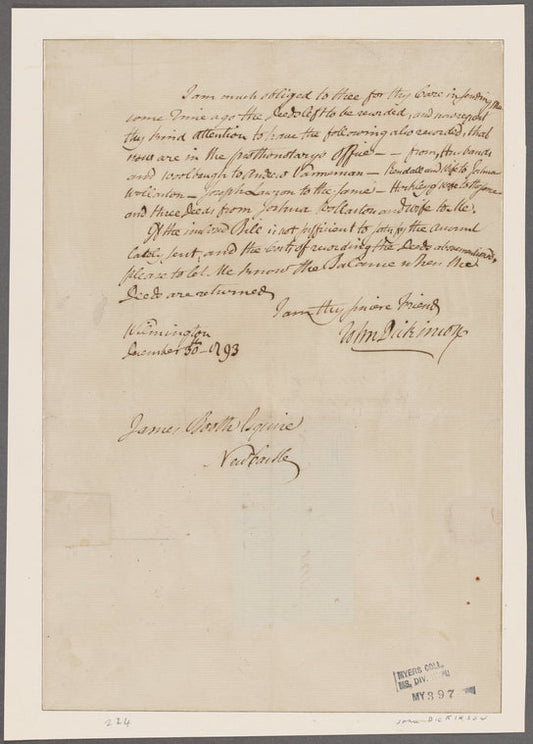 I am much obliged to thee for thy Care in sending me
some Time ago the Deeds left to be recorded, and now repeat
thy kind attention to have the following also recorded, that
now are in the prothonotarys office — from Husbands
and Woolough to Andrew Tanneman — Kendall and Wife to Joshua
Wollaston — Joseph Lawson to the same — Hockley & Wife to the same
and three Deeds from Joshua Wollaston and Wife to Me.
If the inclosed Bill is not sufficient to satisfy the account
lately sent, and the Costs of recording the Deeds abovementioned,
please to let Me know the Balance when the
Deeds are returned
I am thy sincere Friend
John Dickinson
Wilmington
December 30th 1793
James Booth Esquire
New Castle
MYERS COLL.
MS. DIV.
MY 397
224
JOHN DICKINSON